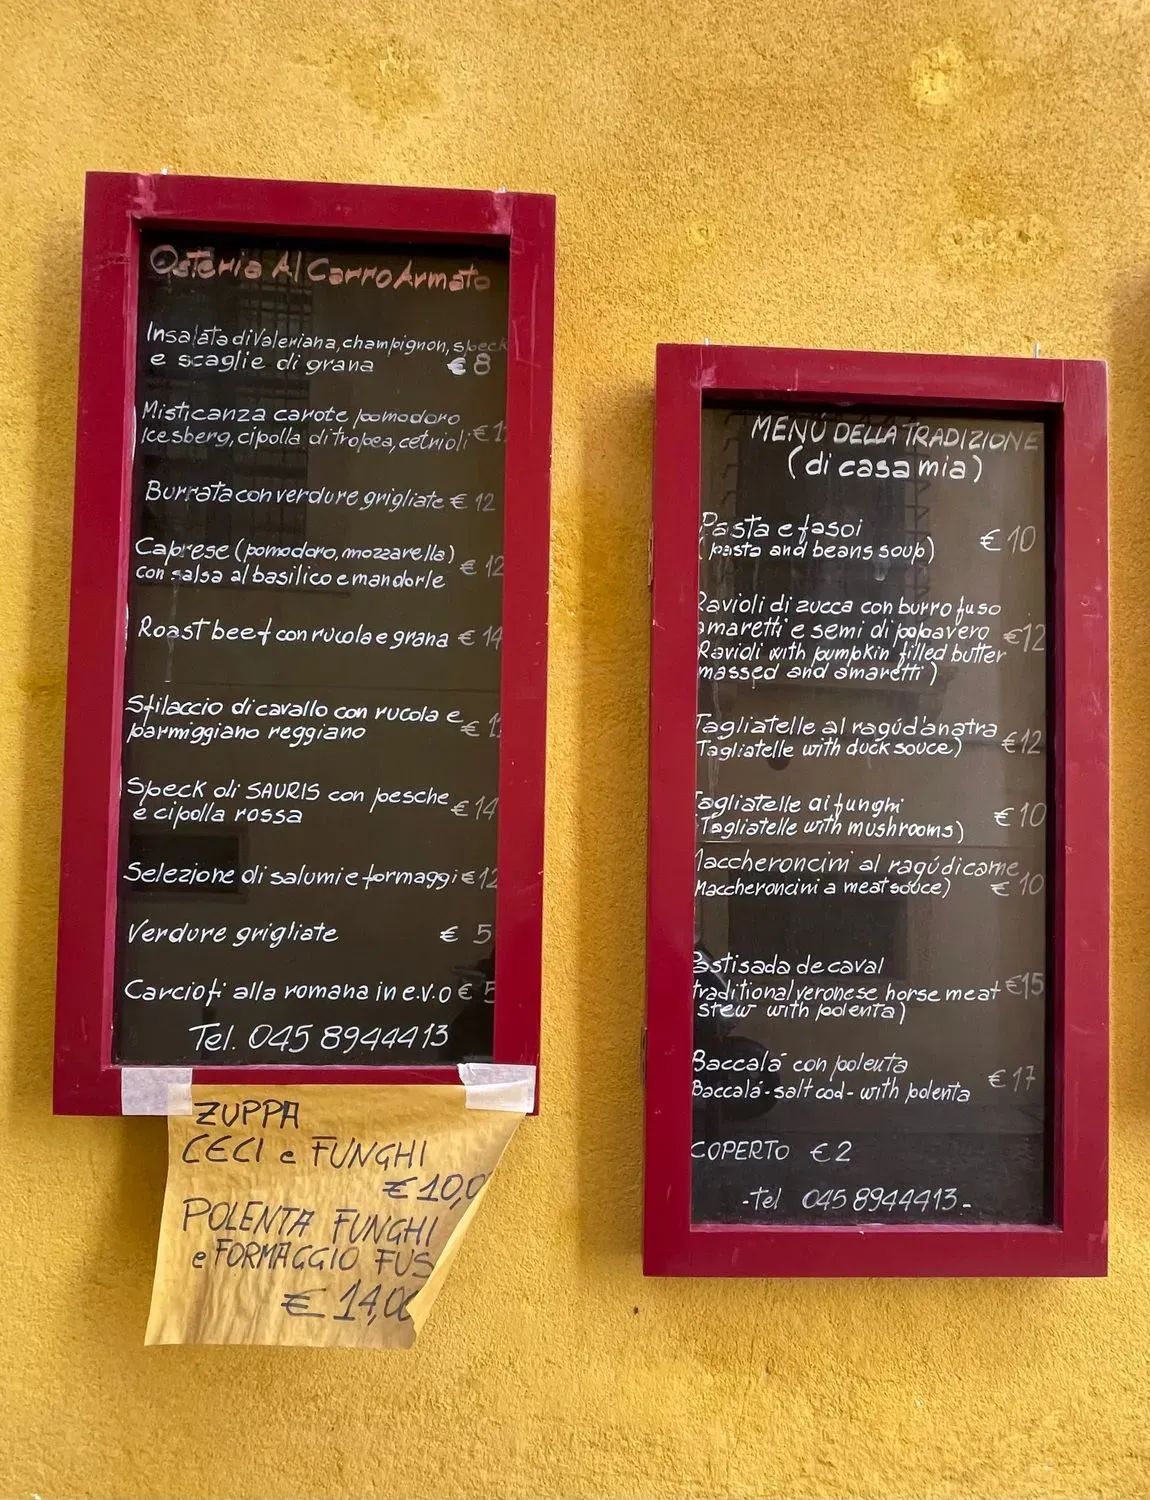 Osteria Al Carro Armato
Insalata di Valeriana, champignon, speck
e scaglie di grana €8
Misticanza carote pomodoro
Icesberg, cipolla di tropea, cetrioli €
Burrata con verdure grigliate € 12
Caprese (pomodoro, mozzarella)
con salsa al basilico e mandorle € 12
Roast beef con rucola e grana € 14
Sfilaccio di cavallo con rucola e
parmiggiano reggiano €
Speck di SAURIS con pesche
e cipolla rossa € 14
Selezione di salumi e formaggi € 12
Verdure grigliate € 5
Carciofi alla romana in e.v.o € 5
Tel. 045 8944413
ZUPPA
CECI e FUNGHI
€ 10,0
POLENTA FUNGHI
e FORMAGGIO FUS
€ 14,00
MENÚ DELLA TRADIZIONE
(di casa mia)
Pasta e fasoi € 10
(pasta and beans soup)
Ravioli di zucca con burro fuso
amaretti e semi di papavero €12
Ravioli with pumpkin filled butter
massed and amaretti)
Tagliatelle al ragú d'anatra
Tagliatelle with duck souce) €12
Tagliatelle ai funghi € 10
(Tagliatelle with mushrooms)
Maccheroncini al ragú di carne
Maccheroncini a meat souce) € 10
Pastisada de caval
traditional veronese horse meat €15
stew with polenta)
Baccalá con polenta € 17
Baccalá - salt cod - with polenta
COPERTO € 2
-Tel 045 8944413-